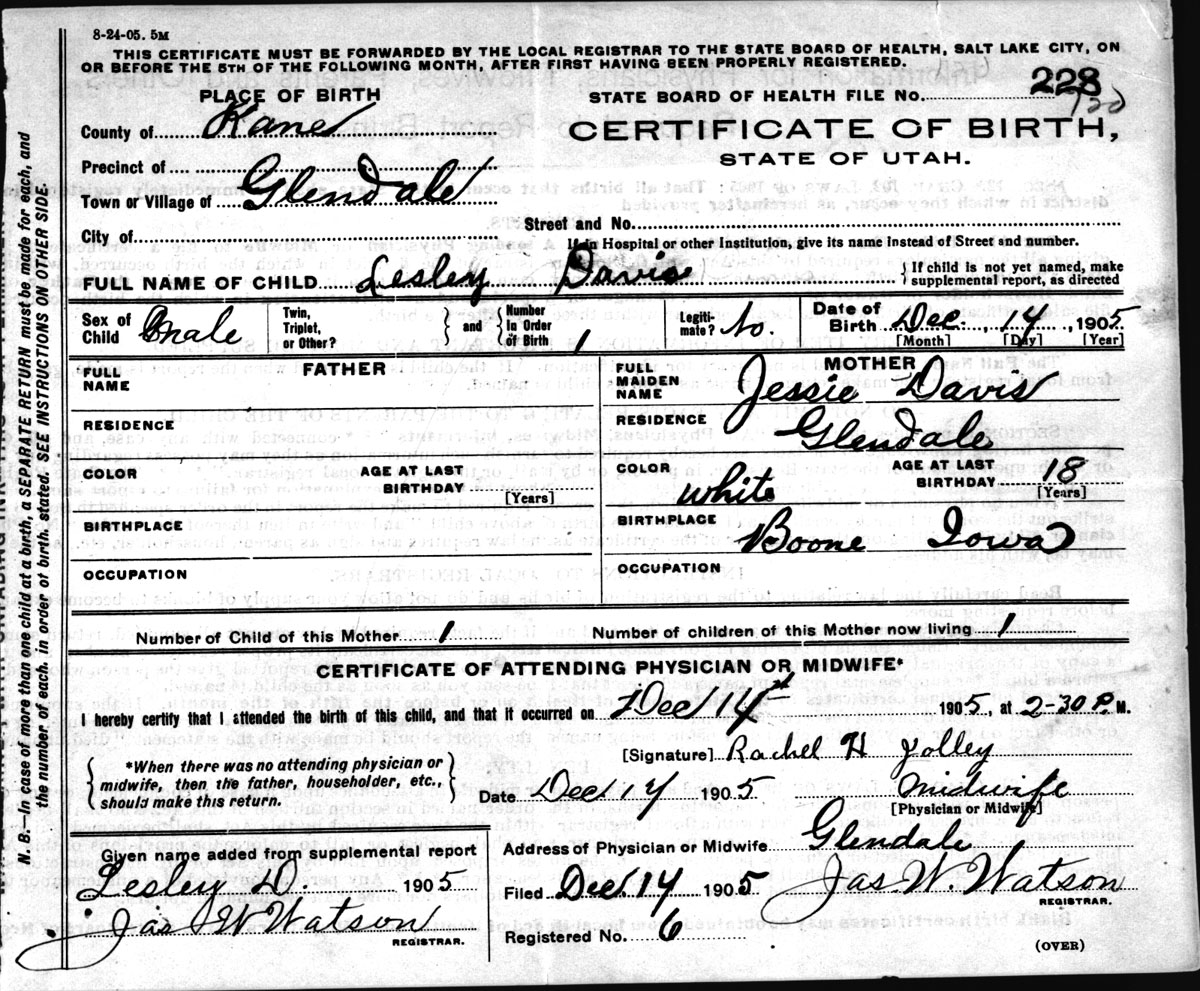 8-24-05. 5M
THIS CERTIFICATE MUST BE FORWARDED BY THE LOCAL REGISTRAR TO THE STATE BOARD OF HEALTH, SALT LAKE CITY, ON
OR BEFORE THE 5TH OF THE FOLLOWING MONTH, AFTER FIRST HAVING BEEN PROPERLY REGISTERED.
PLACE OF BIRTH
STATE BOARD OF HEALTH FILE No. 228
120
County of Kane
CERTIFICATE OF BIRTH,
STATE OF UTAH.
Precinct of
Town or Village of Glendale
City of
Street and No.
If in Hospital or other Institution, give its name instead of Street and number.
FULL NAME OF CHILD Lesley Davis
If child is not yet named, make
supplemental report, as directed
Sex of
Child Male
Twin,
Triplet,
or Other?
and
Number
in Order
of Birth 1
Legiti-
mate? No.
Date of
Birth Dec. , 14 , 1905
[Month] [Day] [Year]
FATHER
FULL
NAME
RESIDENCE
COLOR
AGE AT LAST
BIRTHDAY
[Years]
BIRTHPLACE
OCCUPATION
MOTHER
FULL
MAIDEN
NAME Jessie Davis
RESIDENCE Glendale
COLOR white
AGE AT LAST
BIRTHDAY 18
[Years]
BIRTHPLACE Boone Iowa
OCCUPATION
Number of Child of this Mother 1
Number of children of this Mother now living 1
CERTIFICATE OF ATTENDING PHYSICIAN OR MIDWIFE*
I hereby certify that I attended the birth of this child, and that it occurred on Dec 14st 1905, at 2-30 P. M.
[Signature] Rachel H Jolley
*When there was no attending physician or
midwife, then the father, householder, etc.,
should make this return.
Date Dec 14 1905
Midwife
[Physician or Midwife]
Given name added from supplemental report
Lesley D. 1905
Jas W Watson
REGISTRAR.
Address of Physician or Midwife Glendale
Filed Dec. 14 1905
Jas. W. Watson
REGISTRAR.
Registered No. 6
(OVER)
N. B.—In case of more than one child at a birth, a SEPARATE RETURN must be made for each, and
the number of each, in order of birth, stated. SEE INSTRUCTIONS ON OTHER SIDE.